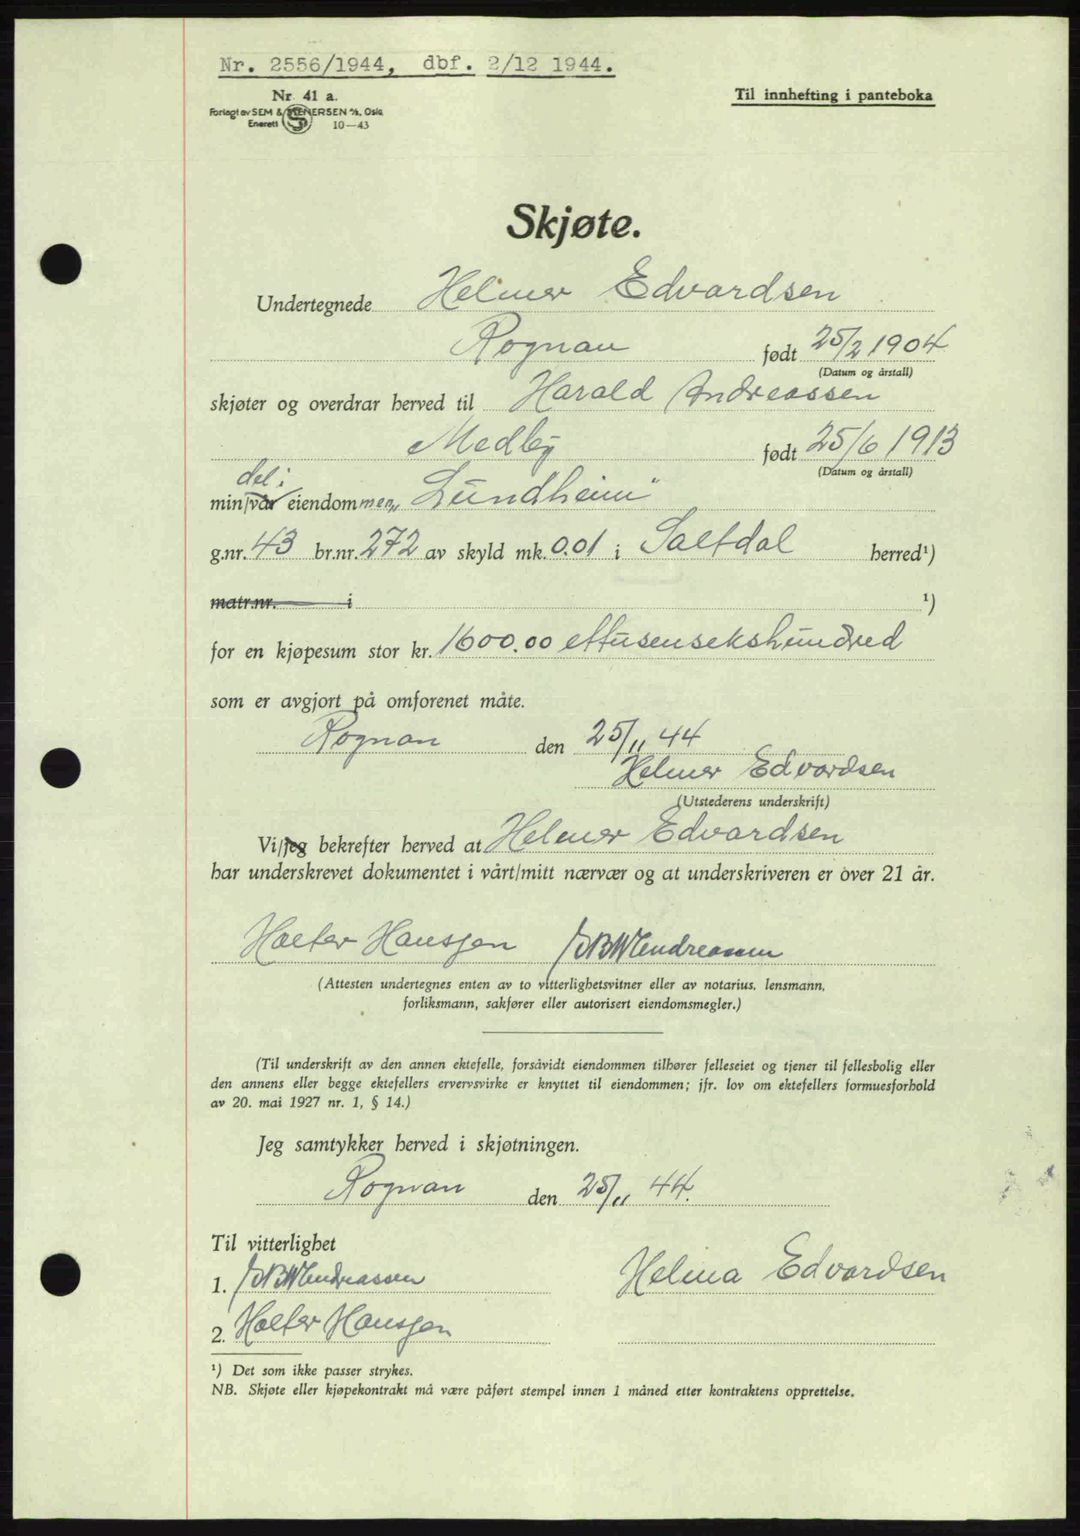 Nr. 2556/1944, dbf. 2/12 1944.
Nr. 41 a.
Forlagt av SEM & STENERSEN A/S, Oslo
Enerett 10—43
Til innhefting i panteboka
Skjøte.
Undertegnede Helmer Edvardsen
Rognan født 25/2 1904
(Datum og årstall)
skjøter og overdrar herved til Harald Andreassen
Medby født 25/6 1913
(Datum og årstall)
del i
min/vår eiendommen „Lundheim"
g.nr. 43 br.nr. 272 av skyld mk. 0.01 i Saltdal herred¹)
matr.nr. i ¹)
for en kjøpesum stor kr. 1600.00 ettusensekshundred
som er avgjort på omforenet måte.
Rognan den 25/11 44
Helmer Edvardsen
(Utstederens underskrift)
Vi/jeg bekrefter herved at Helmer Edvardsen
har underskrevet dokumentet i vårt/mitt nærvær og at underskriveren er over 21 år.
Halfer Hansjen
(Attesten undertegnes enten av to vitterlighetsvitner eller av notarius, lensmann,
forliksmann, sakfører eller autorisert eiendomsmegler.)
(Til underskrift av den annen ektefelle, forsåvidt eiendommen tilhører felleseiet og tjener til fellesbolig eller
den annens eller begge ektefellers ervervsvirke er knyttet til eiendommen; jfr. lov om ektefellers formuesforhold
av 20. mai 1927 nr. 1, § 14.)
Jeg samtykker herved i skjøtningen.
Rognan den 25/11 44.
Til vitterlighet
1. Helma Edvardsen
2. Halfer Hansjen
¹) Det som ikke passer strykes.
NB. Skjøte eller kjøpekontrakt må være påført stempel innen 1 måned etter kontraktens opprettelse.